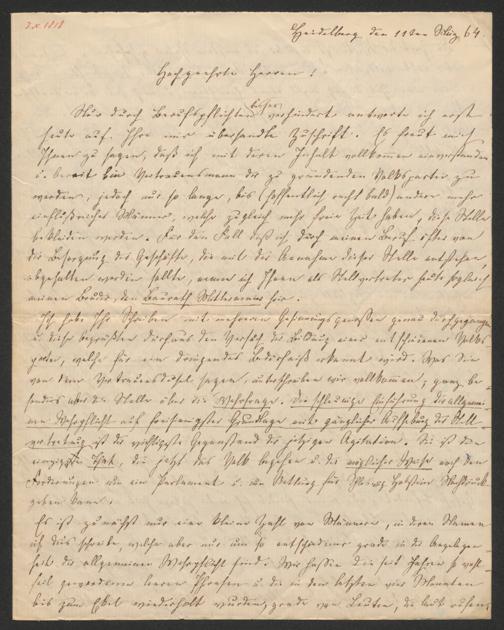 Heidelberg, den 11ten März 64
Hochgeehrte Herren!
Nur durch Berufspflichten bisher verhindert antworte ich erst
heute auf Ihre mir übersandte Zuschrift. Es freut mich
Ihnen zu sagen, daß ich mit deren Inhalt vollkommen einverstanden
u. bereit bin Vertrauensmann der zu gründenden Volkspartei zu
werden, jedoch nur so lange, bis (hoffentlich recht bald) andere mehr
einflußreiche Männer, welche zugleich mehr freie Zeit haben, diese Stelle
bekleiden werden. Für den Fall daß ich durch meinen Beruf öfter von
der Besorgung der Geschäfte, die mit der Annahme dieser Stelle entstehen
abgehalten werden sollte, nenne ich Ihnen als Stellvertreter heute sogleich
meinen Bruder, den Baurath Mittermaier hier.
Ich habe Ihr Schreiben mit mehreren Gesinnungsgenossen genau durchgegangen
u. diese begrüßten durchaus den Versuch der Bildung einer entschiedenen Volks
partei, welche für ein dringendes Bedürfniß erkannt wird. Was Sie
von dem Vertrauensdusel sagen, unterschreiben wir vollkommen, ganz be
sonders aber die Stelle über die Wehrfrage. Die schleunige Einführung der allgemei
nen Wehrpflicht auf freisinnigster Grundlage mit gänzlicher Aufhebung der Stell
vertretung ist der wichtigste Gegenstand der jetzigen Agitation. Sie ist die
einzigste That, die jetzt das Volk begehen u. die möglicher Weise noch den
Forderungen wie ein Parlament u. die Rettung für Schleswig Holstein Nachdruck
geben kann.
Es ist zunächst nur eine kleine Zahl von Männern, in deren Namen
ich dies schreibe, welche aber nur um so entschiedener grade in der Angelegen
heit der allgemeinen Wehrpflicht sind. Wir hassen die seit Jahren so wohl
feil gewordenen leeren Phrasen u. die in den letzten vier Monaten
bis zum Ekel wiederholt wurden, grade von Leuten, die laut rufen,